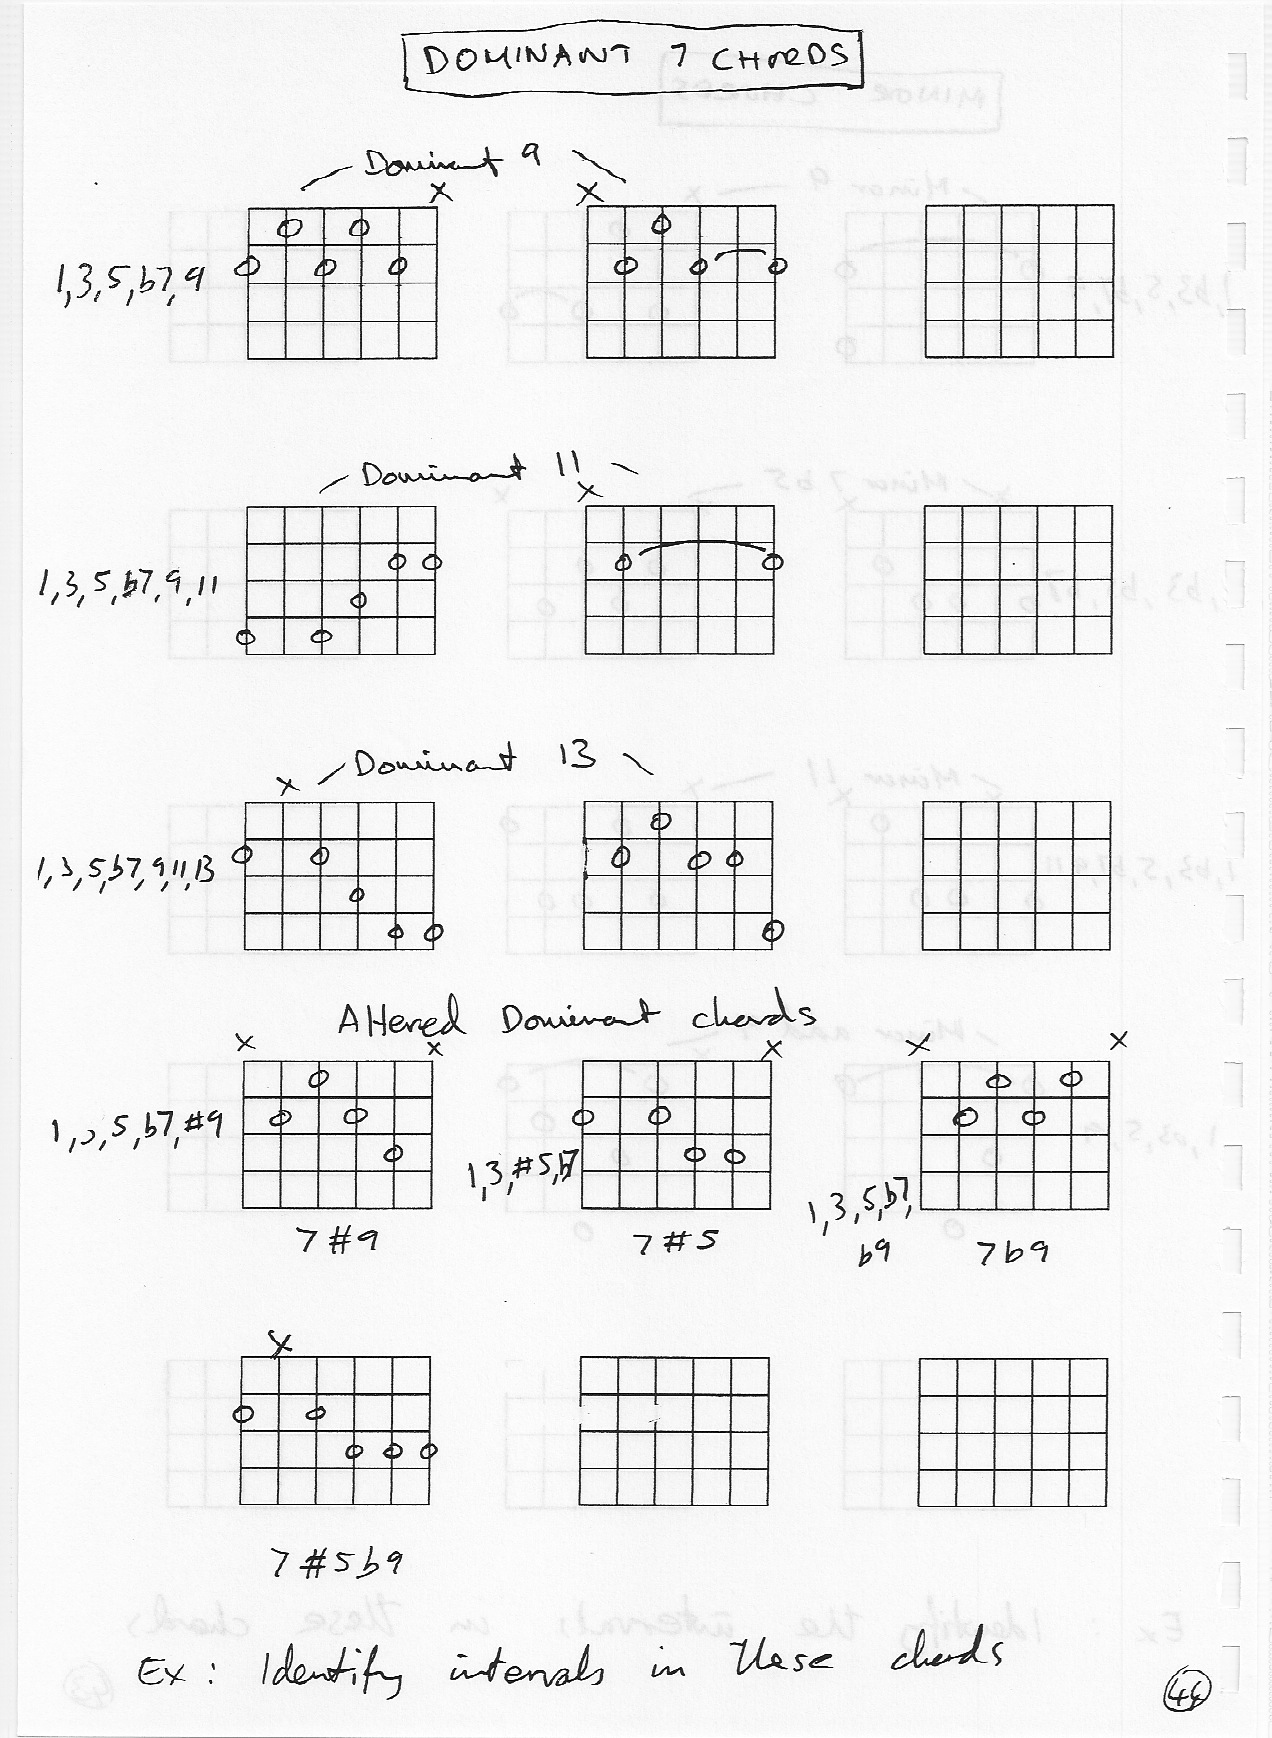 DOMINANT 7 CHORDS
Dominant 9
x x
1,3,5,b7,9
Dominant 11
x
1,3,5,b7,9,11
Dominant 13
x
1,3,5,b7,9,11,13
Altered Dominant chords
x x x x x
1, 5,b7,#9
1,3,#5,b7
1,3,5,b7,
b9
7#9 7#5 7b9
x
7#5b9
Ex: Identify intervals in these chords